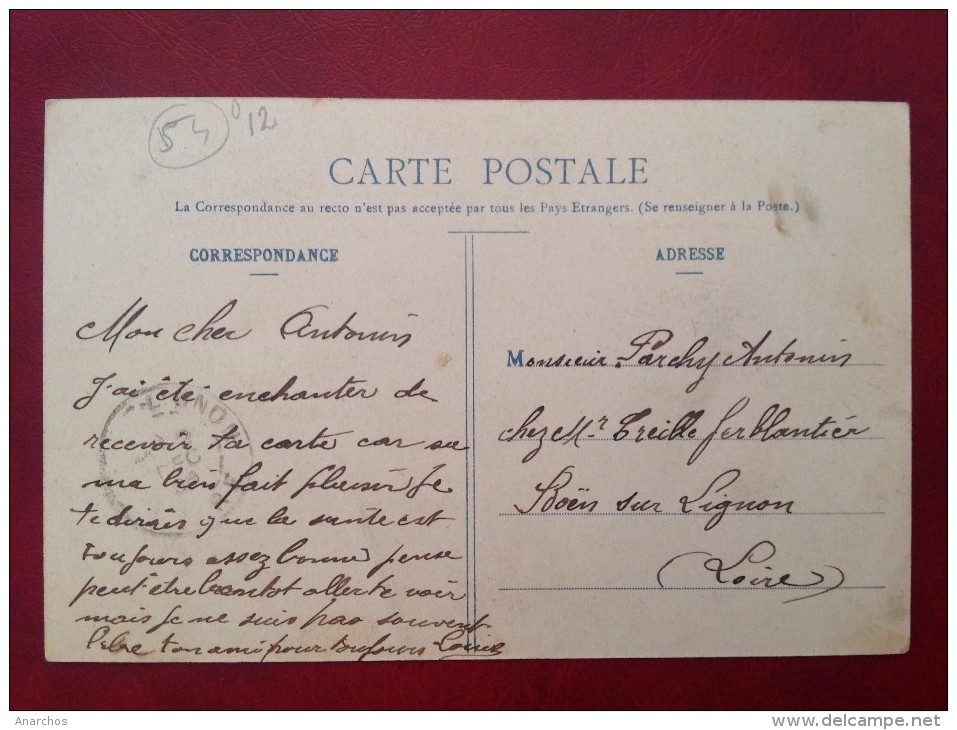 54 12
CARTE POSTALE
La Correspondance au recto n'est pas acceptée par tous les Pays Etrangers. (Se renseigner à la Poste.)
CORRESPONDANCE
Mon cher Antonin
J'ai été enchanter de
recevoir ta carte car sa
ma bien fait plaisir Je
te dirais que la santé est
toujours assez bonne pense
peut être bientot aller te voir
mais je ne suis pas souvent
libre ton ami pour toujours
ADRESSE
Monsieur Parchy Antonin
chez Mr Treille ferblantier
Boën sur Lignon
(Loire)
Anarchos
http://www.delcampe.net